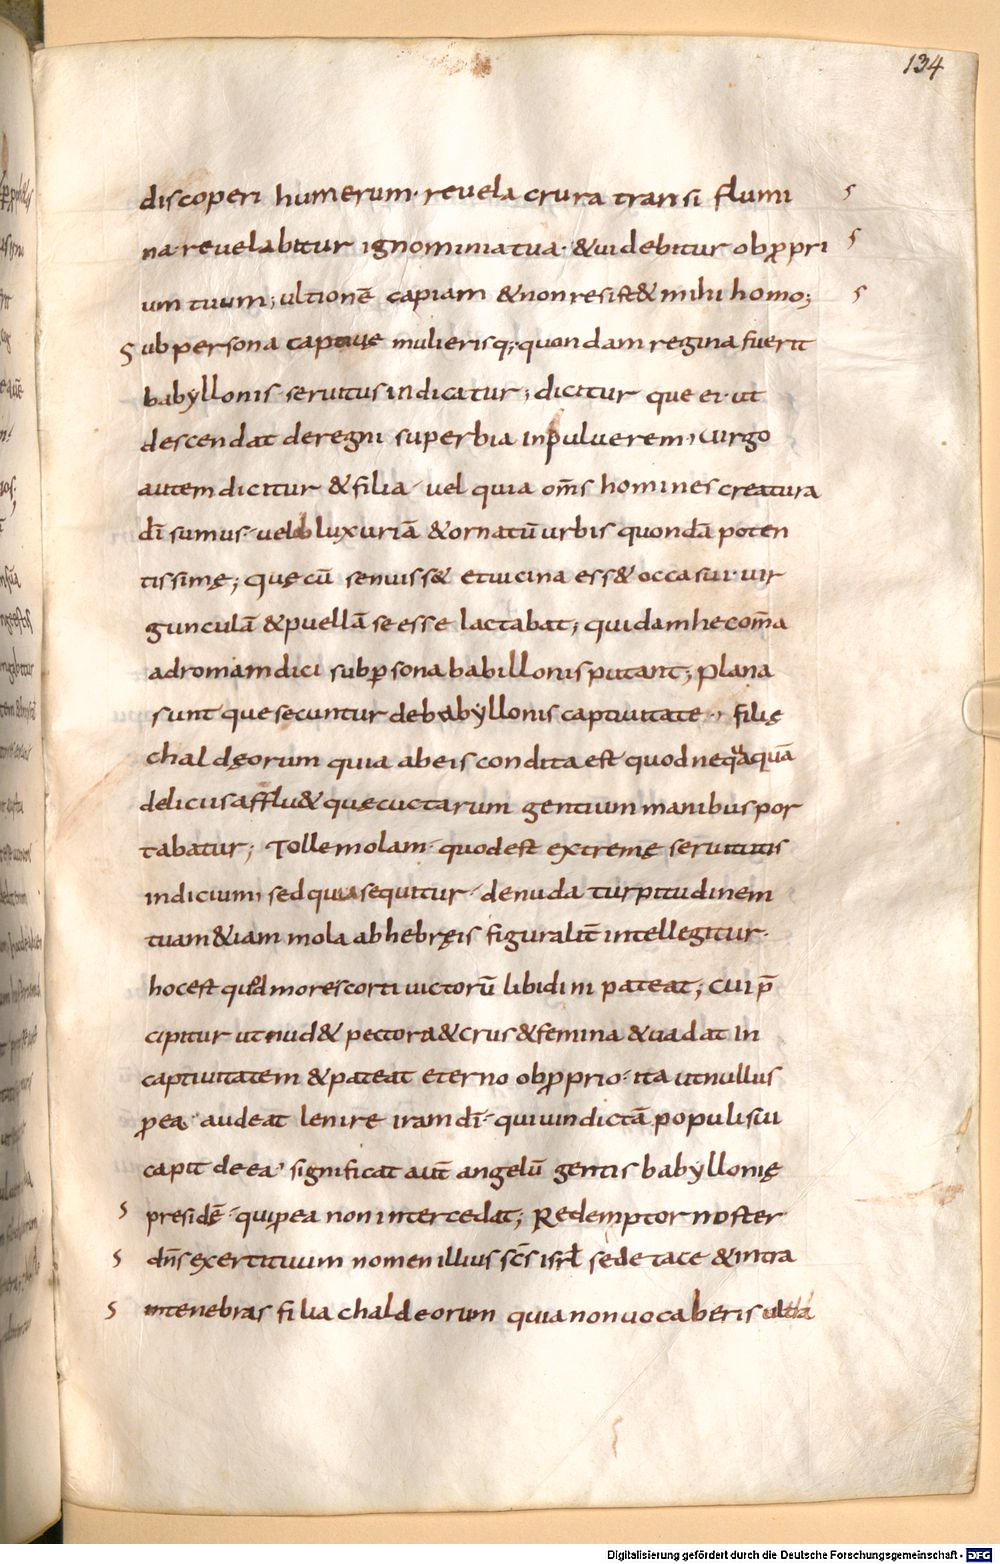 134
discoperi humerum· revela crura transi flumi
na· revelabitur ignominia tua· &videbitur obꝓpri
um tuum; ultionē capiam &non resist& mihi homo;
Sub persona captiuę mulierisq; quondam regina fuerit
babẏllonis· seruitus indicatur; dicitur que ei· ut
descendat de regni superbia in puluerem; uirgo
autem dicitur &filia· vel quia om̄s homines creatura
dī sumus· vel ob luxuriā &ornatū urbis quondā poten
tissimę; quę cū senuiss& et uicina ess& occasui· uir
gunculā &puellā se esse lactabat; quidam hec om̄a
ad romam dici sub ꝑsona babillonis putant; plana
sunt que secuntur de babẏllonis captiuitate· filię
chaldęorum quia ab eis condita est quod nequaquā
deliciis afflu& quę cuctarum gentium manibus por
tabatur; Tolle molam· quod est extremę seruitutis
indicium sed quia sequitur· denuda turpitudinem
tuam &iam mola ab hebręis figuralit̄ intellegitur·
hoc est quod more scorti victorū libidini pateat; cui p̄
cipitur ut nud& pectora &crus &femina &uadat in
captiuitatem &pateat eterno obꝓprio· ita ut nullus
ꝓ ea audeat lenire iram dī· qui uindictā populi sui
capit de ea· significat aut̄ angelū gentis babẏllonię
presidē· qui ꝓ ea non intercedat; Redemptor noster
dn̄s exertituum nomen illius sc̄s isrł sede tace &intra
in tenebras filia chaldeorum quia non uocaberis ultra